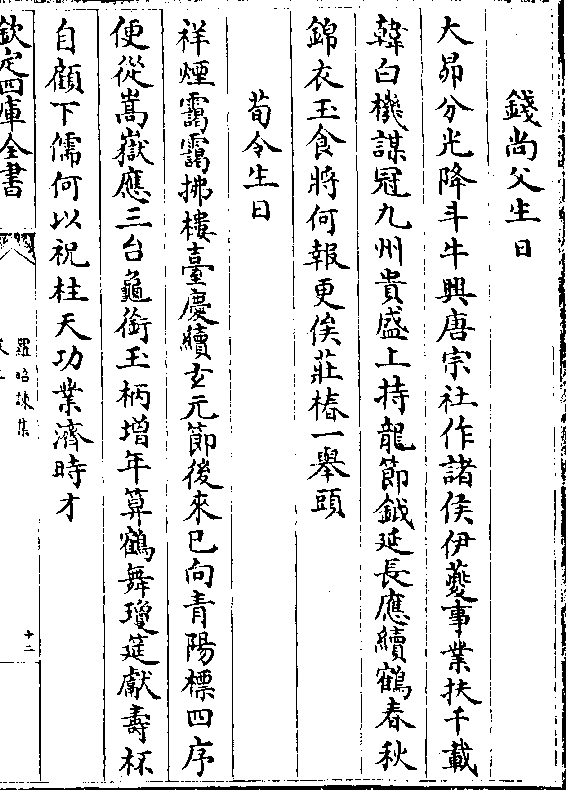 錢尚父生日
大昴分光降斗牛興唐宗社作諸侯伊䕫事業扶千載
韓白機謀冠九州貴盛上持龍節鉞延長應續鶴春秋
錦衣玉食將何報更俟莊椿一舉頭
荀令生日
祥煙靄靄拂樓臺慶續玄元節後來已向青陽標四序
便從嵩嶽應三台龜銜玉柄增年算鶴舞瓊筵獻壽杯
自顧下儒何以祝柱天功業濟時才
欽定四庫全書
羅昭諫集
十二